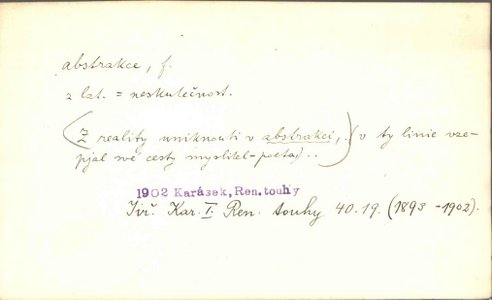 abstrakce, f.
z lat. = neskutečnost.
(Z reality uniknouti v abstrakci,.) (v ty linie vze-
pjal své cesty myslitel-poeta)..
1902 Karásek, Ren. touhy
Jiř. Kar. I. Ren. touhy 40.19. (1893-1902).